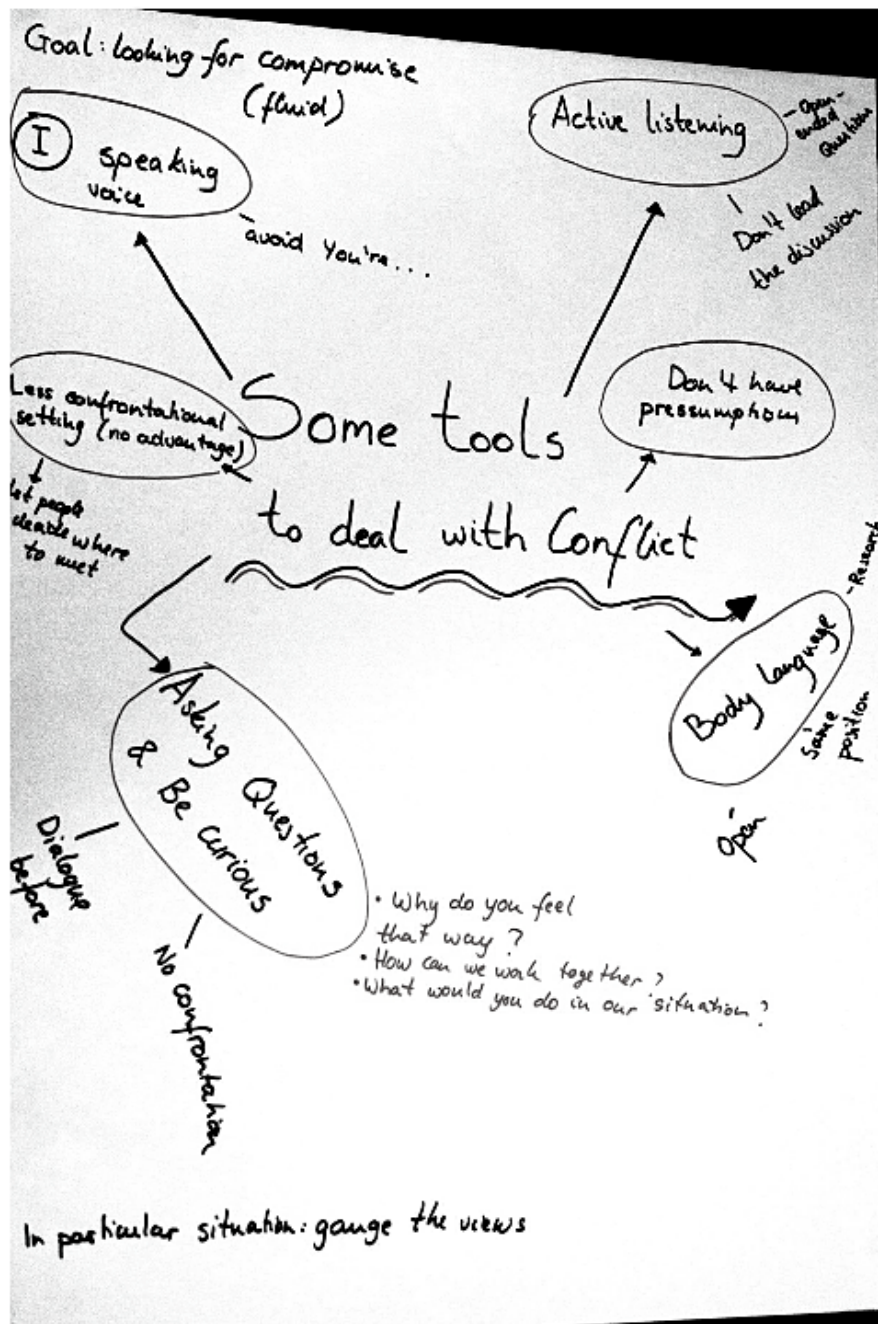 Goal: looking for compromise
(fluid)
I speaking
voice
- avoid You're...
Active listening
- Open-
ended
Questions
- Don't lead
the discussion
Less confrontational
setting (no advantage)
let people
decide where
to meet
Some tools
to deal with Conflict
Don't have
pressumptions
Body Language
- Research
- Same
position
- Open
Asking Questions
& Be curious
- Dialogue
before
- No confrontation
• Why do you feel
that way?
• How can we work together?
• What would you do in our situation?
In particular situation: gauge the views